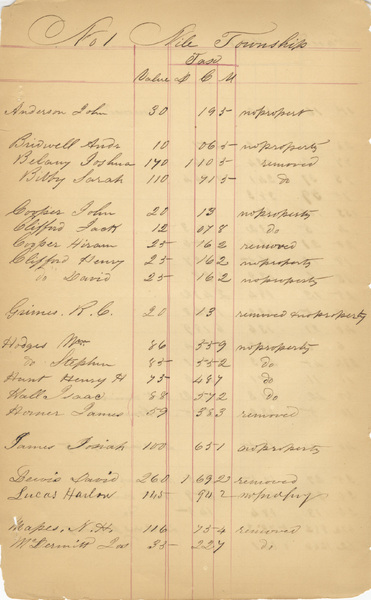 No 1 Nile Township
Tax
Value $ C M
Anderson John 30 19 5 no propert
Bridwell Andr 10 06 5 no property
Belany Joshua 170 1 10 5 removed
Bilby Sarah 110 71 5 do
Cooper John 20 13 no property
Clifford Jack 12 07 8 do
Cooper Hiram 25 16 2 removed
Clifford Henry 25 16 2 no property
do David 25 16 2 no property
Grimes, R. C. 20 13 removed & no property
Hodges Wm 86 55 9 no property
do Stephen 85 55 2 do
Hunt Henry H 75 48 7 do
Hall Isaac 88 57 2 do
Horner James 59 38 3 removed
James Josiah 100 65 1 no property
Lewis David 260 1 69 2 removed
Lucas Harlow 145 94 2 no property
Mapes, N. H. 116 75 4 removed
McDermitt Jas 35 22 7 do